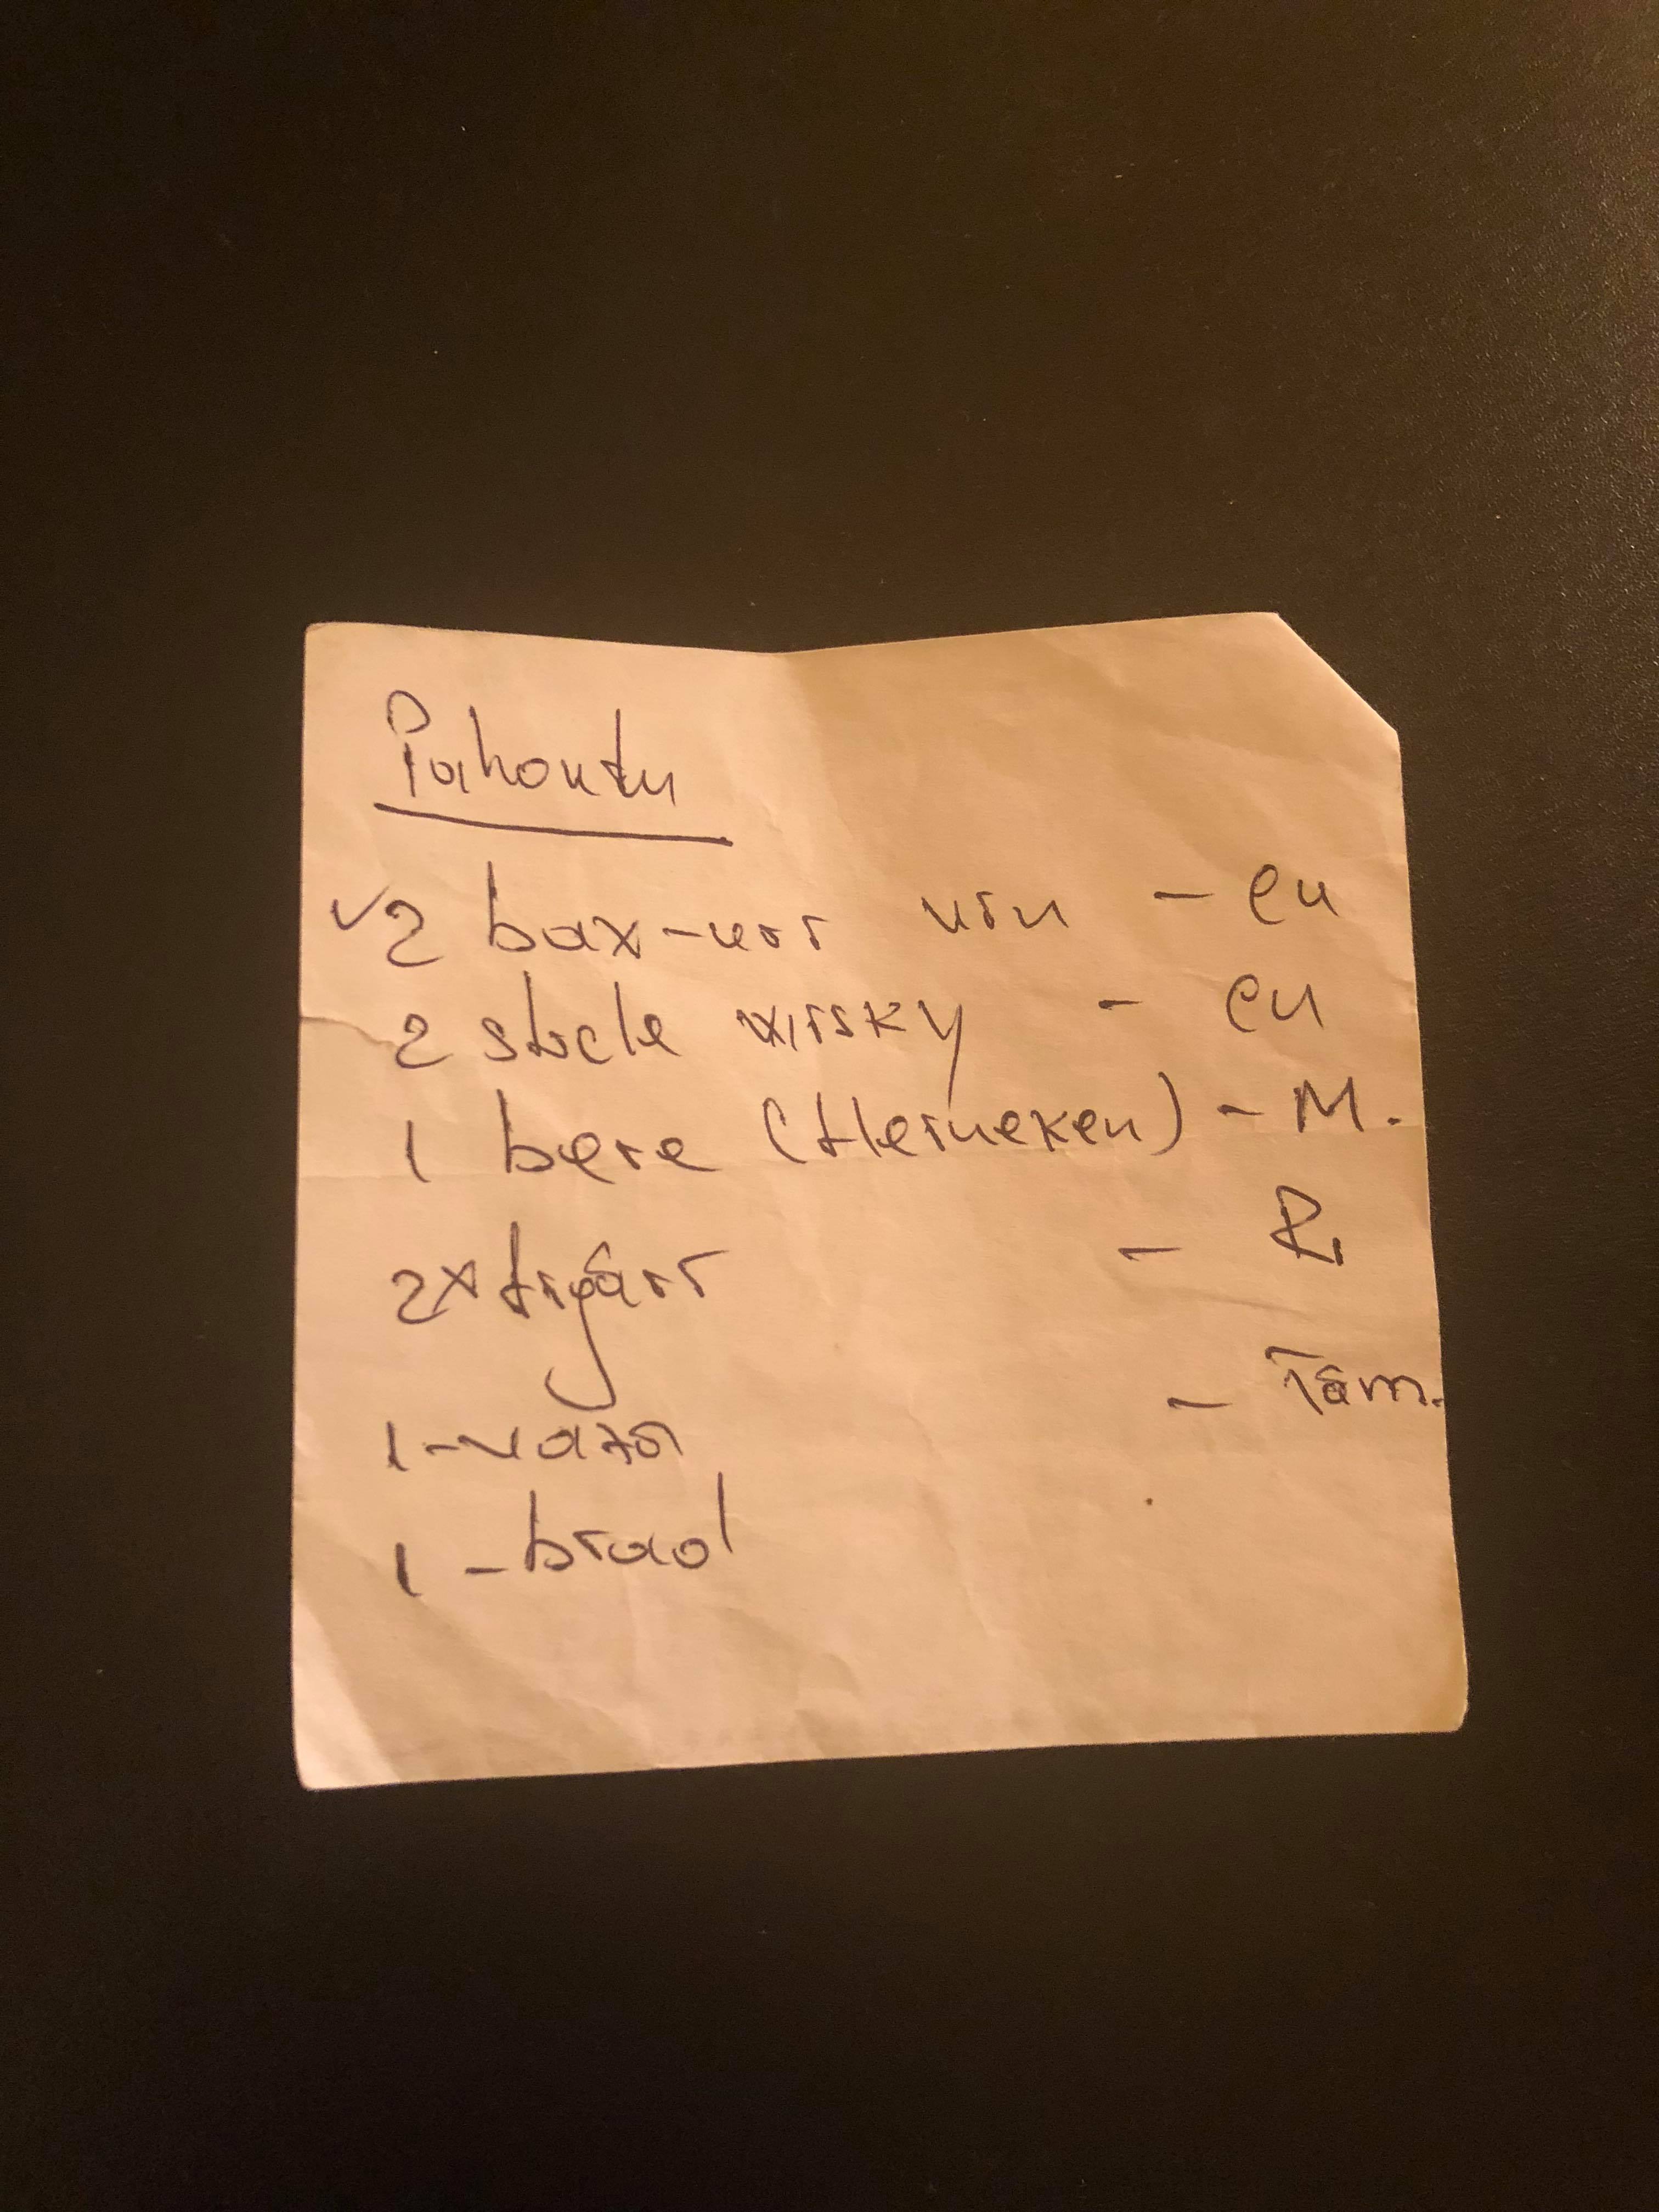 Pahontu
✓2 bax-uri vin - eu
2 sticle wisky - eu
1 bere (Heineken) - M.
2x țigări - R.
1-vază - Tăm.
1 - brad